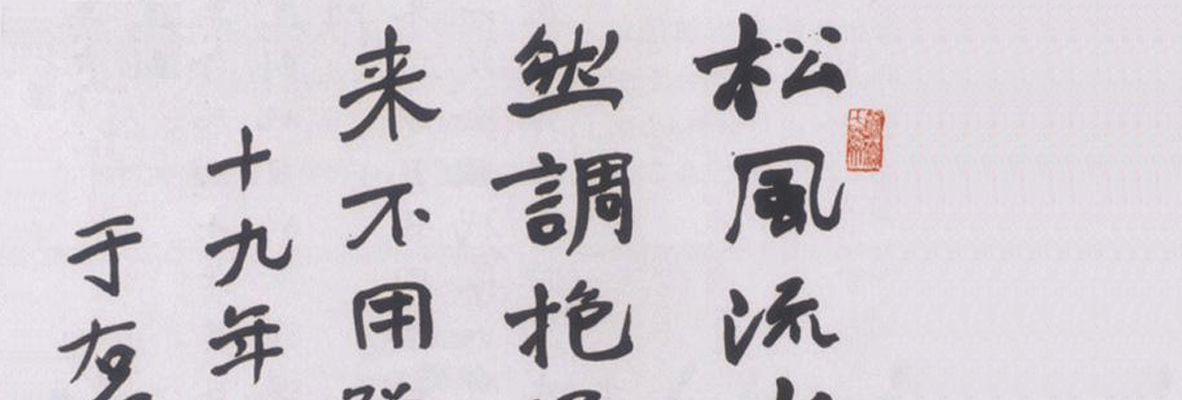 松風流
然調抱
来不用
十九年
于右